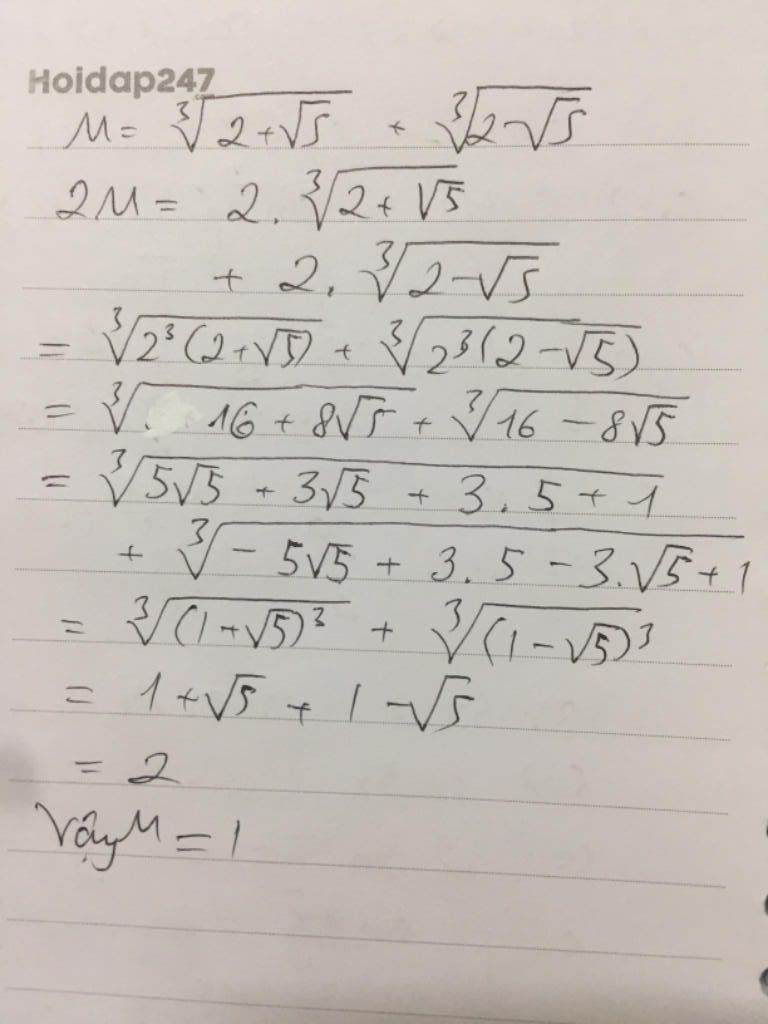 Hoidap247
.com
M = ∛(2+√5) + ∛(2-√5)
2M = 2. ∛(2+√5)
+ 2. ∛(2-√5)
= ∛(2³(2+√5)) + ∛(2³(2-√5))
= ∛(16+8√5) + ∛(16-8√5)
= ∛(5√5 + 3√5 + 3.5 + 1)
+ ∛(-5√5 + 3.5 - 3.√5 + 1)
= ∛((1+√5)³) + ∛((1-√5)³)
= 1+√5 + 1-√5
= 2
Vậy M = 1